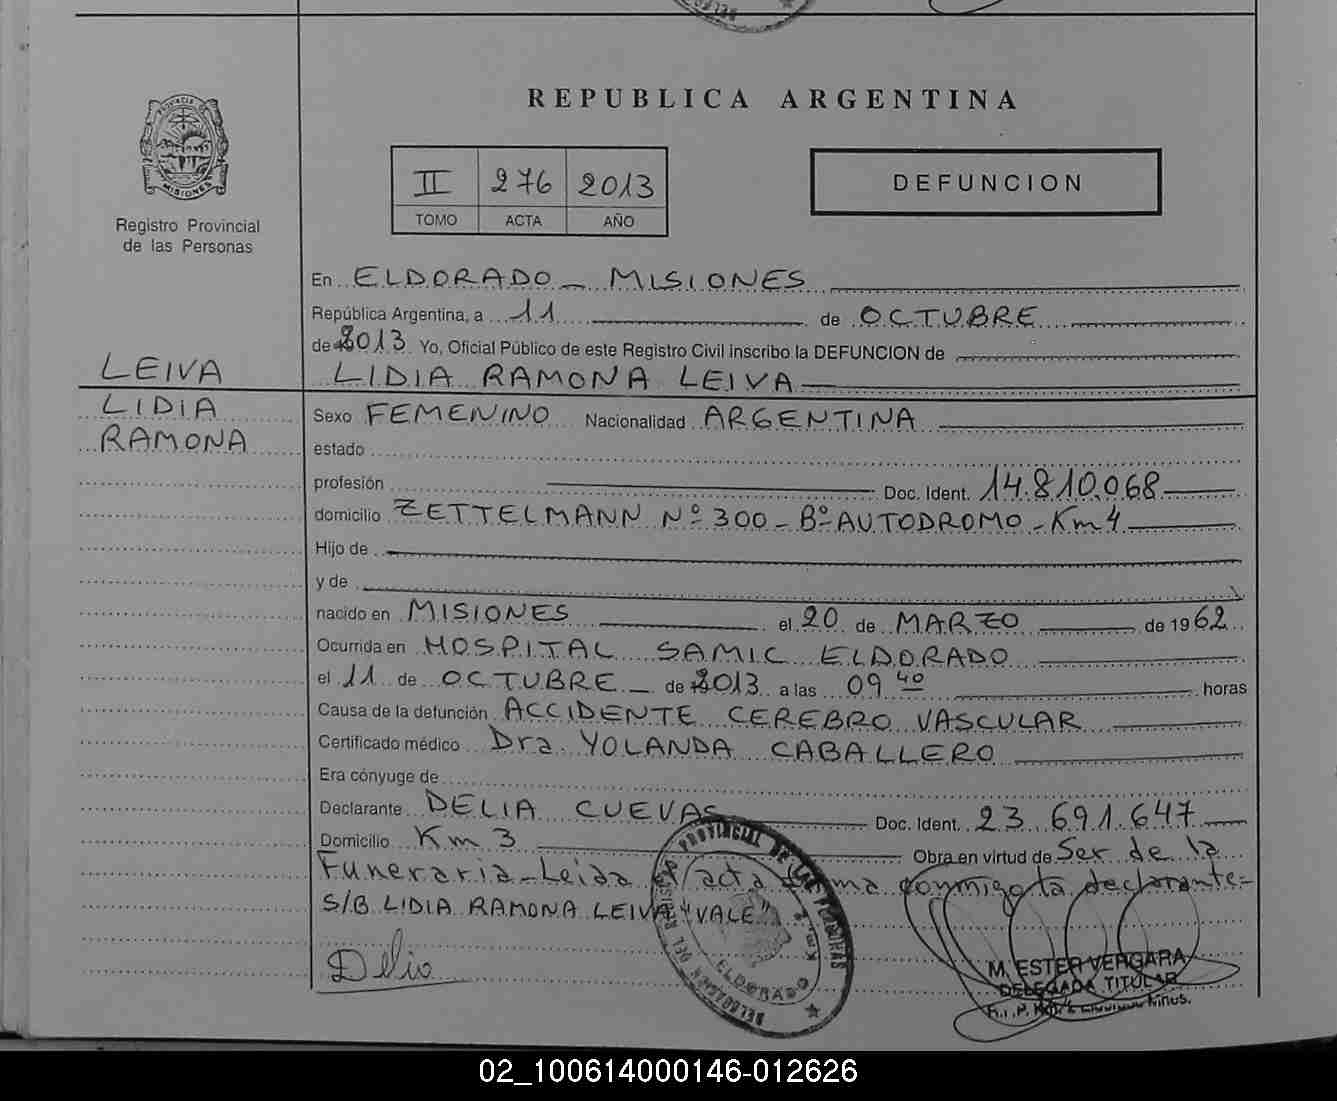 REPUBLICA ARGENTINA
II 276 2013
TOMO ACTA AÑO
DEFUNCION
PROVINCIA DE MISIONES
Registro Provincial
de las Personas
LEIVA
LIDIA
RAMONA
En ELDORADO - MISIONES
República Argentina, a 11 de OCTUBRE
de 2013 Yo, Oficial Público de este Registro Civil inscribo la DEFUNCION de
LIDIA RAMONA LEIVA
Sexo FEMENINO Nacionalidad ARGENTINA
estado
profesión Doc. Ident. 14.810.068
domicilio ZETTELMANN Nº 300 - Bº AUTODROMO - Km 4
Hijo de
y de
nacido en MISIONES el 20 de MARZO de 1962
Ocurrida en HOSPITAL SAMIC ELDORADO
el 11 de OCTUBRE - de 2013 a las 09 40 horas
Causa de la defunción ACCIDENTE CEREBRO VASCULAR
Certificado médico Dra YOLANDA CABALLERO
Era cónyuge de
Declarante DELIA CUEVAS Doc. Ident. 23.691.647
Domicilio Km 3 Obra en virtud de Ser de la
Funeraria - Leida acta conmigo la declarante =
S/B LIDIA RAMONA LEIVA "VALE"
Delia
DELEGACION DEL REGISTRO PROVINCIAL DE LAS PERSONAS
ELDORADO
M. ESTER VERGARA
DELEGADA TITULAR
02_100614000146-012626